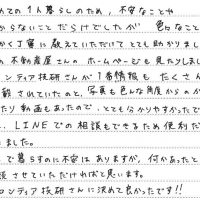 めての1人暮らしのため、不安なことや
からないことだらけでしたが 色々なこと
かく丁寧に教えていただいてとても助かりまし
の不動産屋さんの ホームページも見たりしまし
ロンディア技研さんが1番情報も たくさん
載されていたのと、写真も色んな角度からのが
たり 動画もあったので、とても分かりやすかったで
、LINEでの相談もできるため便利だ
ました。
で暮らすのに不安はありますが、何かあったと
談させていただければと思います。
ロンディア技研さんに決めて良かったです!!